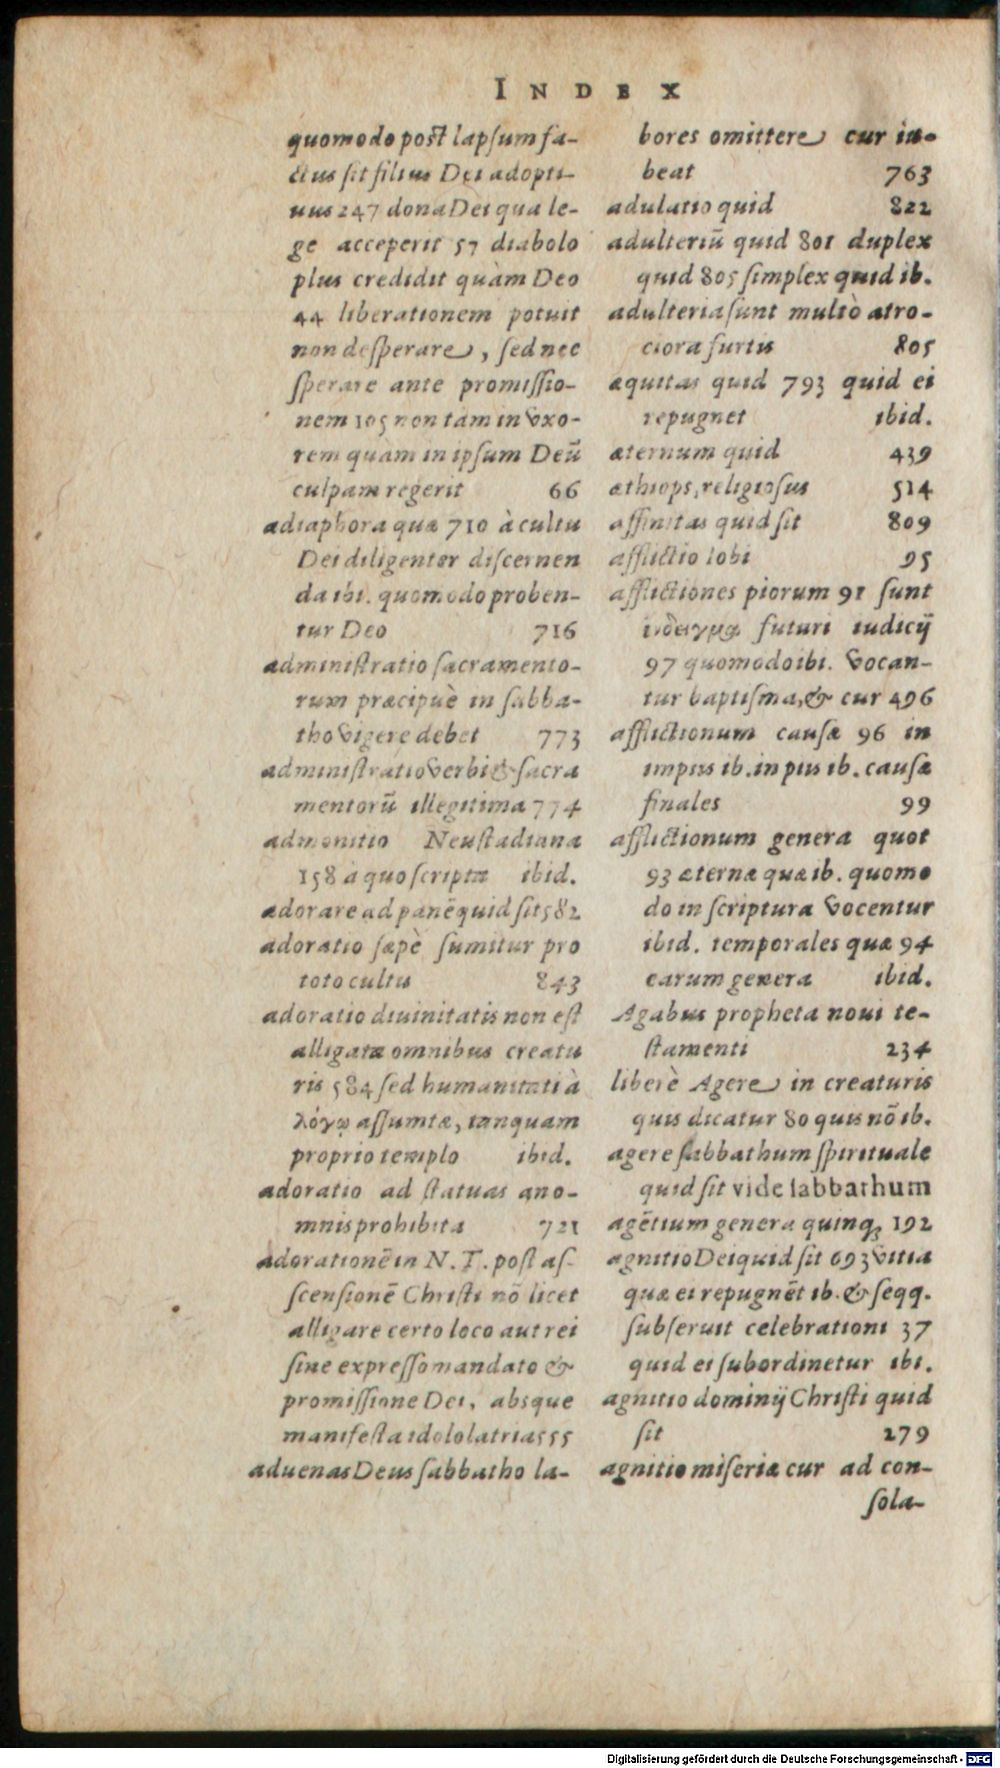 INDEX
quomodo post lapsum fa-
ctus sit filius Dei adopti-
uus 247 dona Dei qua le-
ge acceperit 57 diabolo
plus credidit quàm Deo
44 liberationem potuit
non desperare, sed nec
sperare ante promissio-
nem 105 non tam in vxo-
rem quam in ipsum Deū
culpam regerit 66
adiaphora quæ 710 à cultu
Dei diligenter discernen
da ibi. quomodo proben-
tur Deo 716
administratio sacramento-
rum præcipuè in sabba-
tho vigere debet 773
administratio verbi & sacra
mentorū illegitima 774
admonitio Neustadiana
158 à quo scripta ibid.
adorare ad panē quid sit 582
adoratio sæpè sumitur pro
toto cultu 843
adoratio diuinitatis non est
alligata omnibus creatu
ris 584 sed humanitati à
λόγῳ assumtæ, tanquam
proprio templo ibid.
adoratio ad statuas ano-
mnis prohibita 721
adorationē in N. T. post as-
scensionē Christi nō licet
alligare certo loco aut rei
sine expresso mandato &
promissione Dei, absque
manifesta idololatria 555
aduenas Deus sabbatho la-
bores omittere cur iu-
beat 763
adulatio quid 822
adulteriū quid 801 duplex
quid 805 simplex quid ib.
adulteria sunt multò atro-
ciora furtis 805
æquitas quid 793 quid ei
repugnet ibid.
æternum quid 439
æthiops, religiosus 514
affinitas quid sit 809
afflictio Iobi 95
afflictiones piorum 91 sunt
futuri iudicij
97 quomodo ibi. vocan-
tur baptisma, & cur 496
afflictionum causæ 96 in
impiis ib. in piis ib. causæ
finales 99
afflictionum genera quot
93 æternæ quæ ib. quomo
do in scriptura vocentur
ibid. temporales quæ 94
earum genera ibid.
Agabus propheta noui te-
stamenti 234
liberè Agere in creaturis
quis dicatur 80 quis nō ib.
agere sabbathum spirituale
quid sit vide sabbathum
agētium genera quinq; 192
agnitio Dei quid sit 693 vitia
quæ ei repugnēt ib. & seqq.
subseruit celebrationi 37
quid ei subordinetur ibi.
agnitio dominij Christi quid
sit 279
agnitio miseriæ cur ad con-
sola-
Digitalisierung gefördert durch die Deutsche Forschungsgemeinschaft - DFG